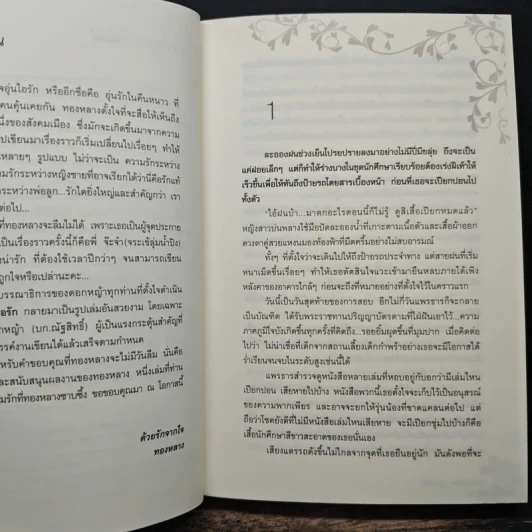 น
จอุ่นไอรัก หรืออีกชื่อคือ อุ่นรักในคืนหนาว ที่
คนคุ้นเคยกัน ทองหลางตั้งใจที่จะสื่อให้เห็นถึง
นึ่งของสังคมเมือง ซึ่งมักจะเกิดขึ้นมาจากความ
ปเขียนมาเรื่องราวก็เริ่มเปลี่ยนไปเรื่อยๆ ทำให้
หลายๆ รูปแบบ ไม่ว่าจะเป็น ความรักระหว่าง
กระหว่างหญิงชายที่อาจเรียกได้ว่านี่คือรักแท้
ระหว่างพ่อลูก...รักใดยิ่งใหญ่และสำคัญกว่า เรา
ต่อไป...
ทองหลางจะลืมไม่ได้ เพราะเธอเป็นผู้จุดประกาย
เป็นเรื่องราวครั้งนี้ก็คือพี่ จ๊ะจ๋า
น่ารัก ที่ต้องใช้เวลาปีกว่าๆ จนสามารถเขียน
ถูกใจหรือเปล่านะคะ...
บรรณาธิการของดอกหญ้าทุกท่านที่ตั้งใจดำเนิน
อรัก กลายมาเป็นรูปเล่มอันสวยงาม โดยเฉพาะ
หญ้า (บก.ณัฐสิทธิ์) ผู้เป็นแรงกระตุ้นสำคัญที่
รรค์งานเขียนได้แล้วเสร็จตามกำหนด
หรับคำขอบคุณที่ทองหลางจะไม่มีวันลืม นั่นคือ
และสนับสนุนผลงานของทองหลาง หนึ่งเล่มที่ท่าน
มรักที่ทองหลางซาบซึ้ง ขอขอบคุณมา ณ โอกาสนี้
ด้วยรักจากใจ
ทองหลาง
1
ละอองฝนช่วงเย็นโปรยปรายลงมาอย่างไม่มีปี่มีขลุ่ย ถึงจะเป็น
แค่ฝอยเล็กๆ แต่ก็ทำให้ร่างบางในชุดนักศึกษาเรียบร้อยต้องเร่งฝีเท้าให้
เร็วขึ้นเพื่อให้ทันถึงป้ายรถโดยสารเบื้องหน้า ก่อนที่เธอจะเปียกปอนไป
ทั้งตัว
"ไอ้ฝนบ้า...มาตกอะไรตอนนี้ก็ไม่รู้ ดูสิเสื้อเปียกหมดแล้ว"
หญิงสาวบ่นพลางใช้มือปัดละอองน้ำที่เกาะตามเนื้อตัวและเสื้อผ้าออก
ดวงตาคู่สวยแหงนมองท้องฟ้าที่มืดครึ้มอย่างไม่สบอารมณ์
ทั้งๆ ที่ตั้งใจว่าจะเดินไปให้ถึงป้ายรถประจำทาง แต่สายฝนที่เริ่ม
หนาเม็ดขึ้นเรื่อยๆ ทำให้เธอตัดสินใจแวะเข้ามายืนหลบภายใต้เพิง
หลังคาของอาคารใกล้ๆ ก่อนจะถึงที่หมายอย่างที่ตั้งใจไว้ในคราวแรก
วันนี้เป็นวันสุดท้ายของการสอบ อีกไม่กี่วันแพรธารก็จะกลาย
เป็นบัณฑิต ได้รับพระราชทานปริญญาบัตรตามที่ได้ฝันเอาไว้...ความ
ภาคภูมิใจบังเกิดขึ้นทุกครั้งที่คิดถึง...รอยยิ้มผุดขึ้นที่มุมปาก เมื่อคิดต่อ
ไปว่า ไม่น่าเชื่อที่เด็กจากสถานเลี้ยงเด็กกำพร้าอย่างเธอจะมีโอกาสได้
ร่ำเรียนจนจบในระดับสูงเช่นนี้ได้
แพรธารสำรวจดูหนังสือหลายเล่มที่หอบอยู่กับอกว่ามีเล่มไหน
เปียกปอน เสียหายไปบ้าง หนังสือพวกนี้เธอตั้งใจจะเก็บไว้เป็นอนุสรณ์
ของความพากเพียร และอาจจะยกให้รุ่นน้องที่ขาดแคลนต่อไป แต่
ถือว่าโชคยังดีที่ไม่มีหนังสือเล่มไหนเสียหาย จะมีเปียกชุ่มไปบ้างก็คือ
เสื้อนักศึกษาสีขาวสะอาดของเธอนั่นเอง
เสียงแตรรถดังขึ้นไม่ไกลจากจุดที่เธอยืนอยู่นัก มันดังพอที่จะ